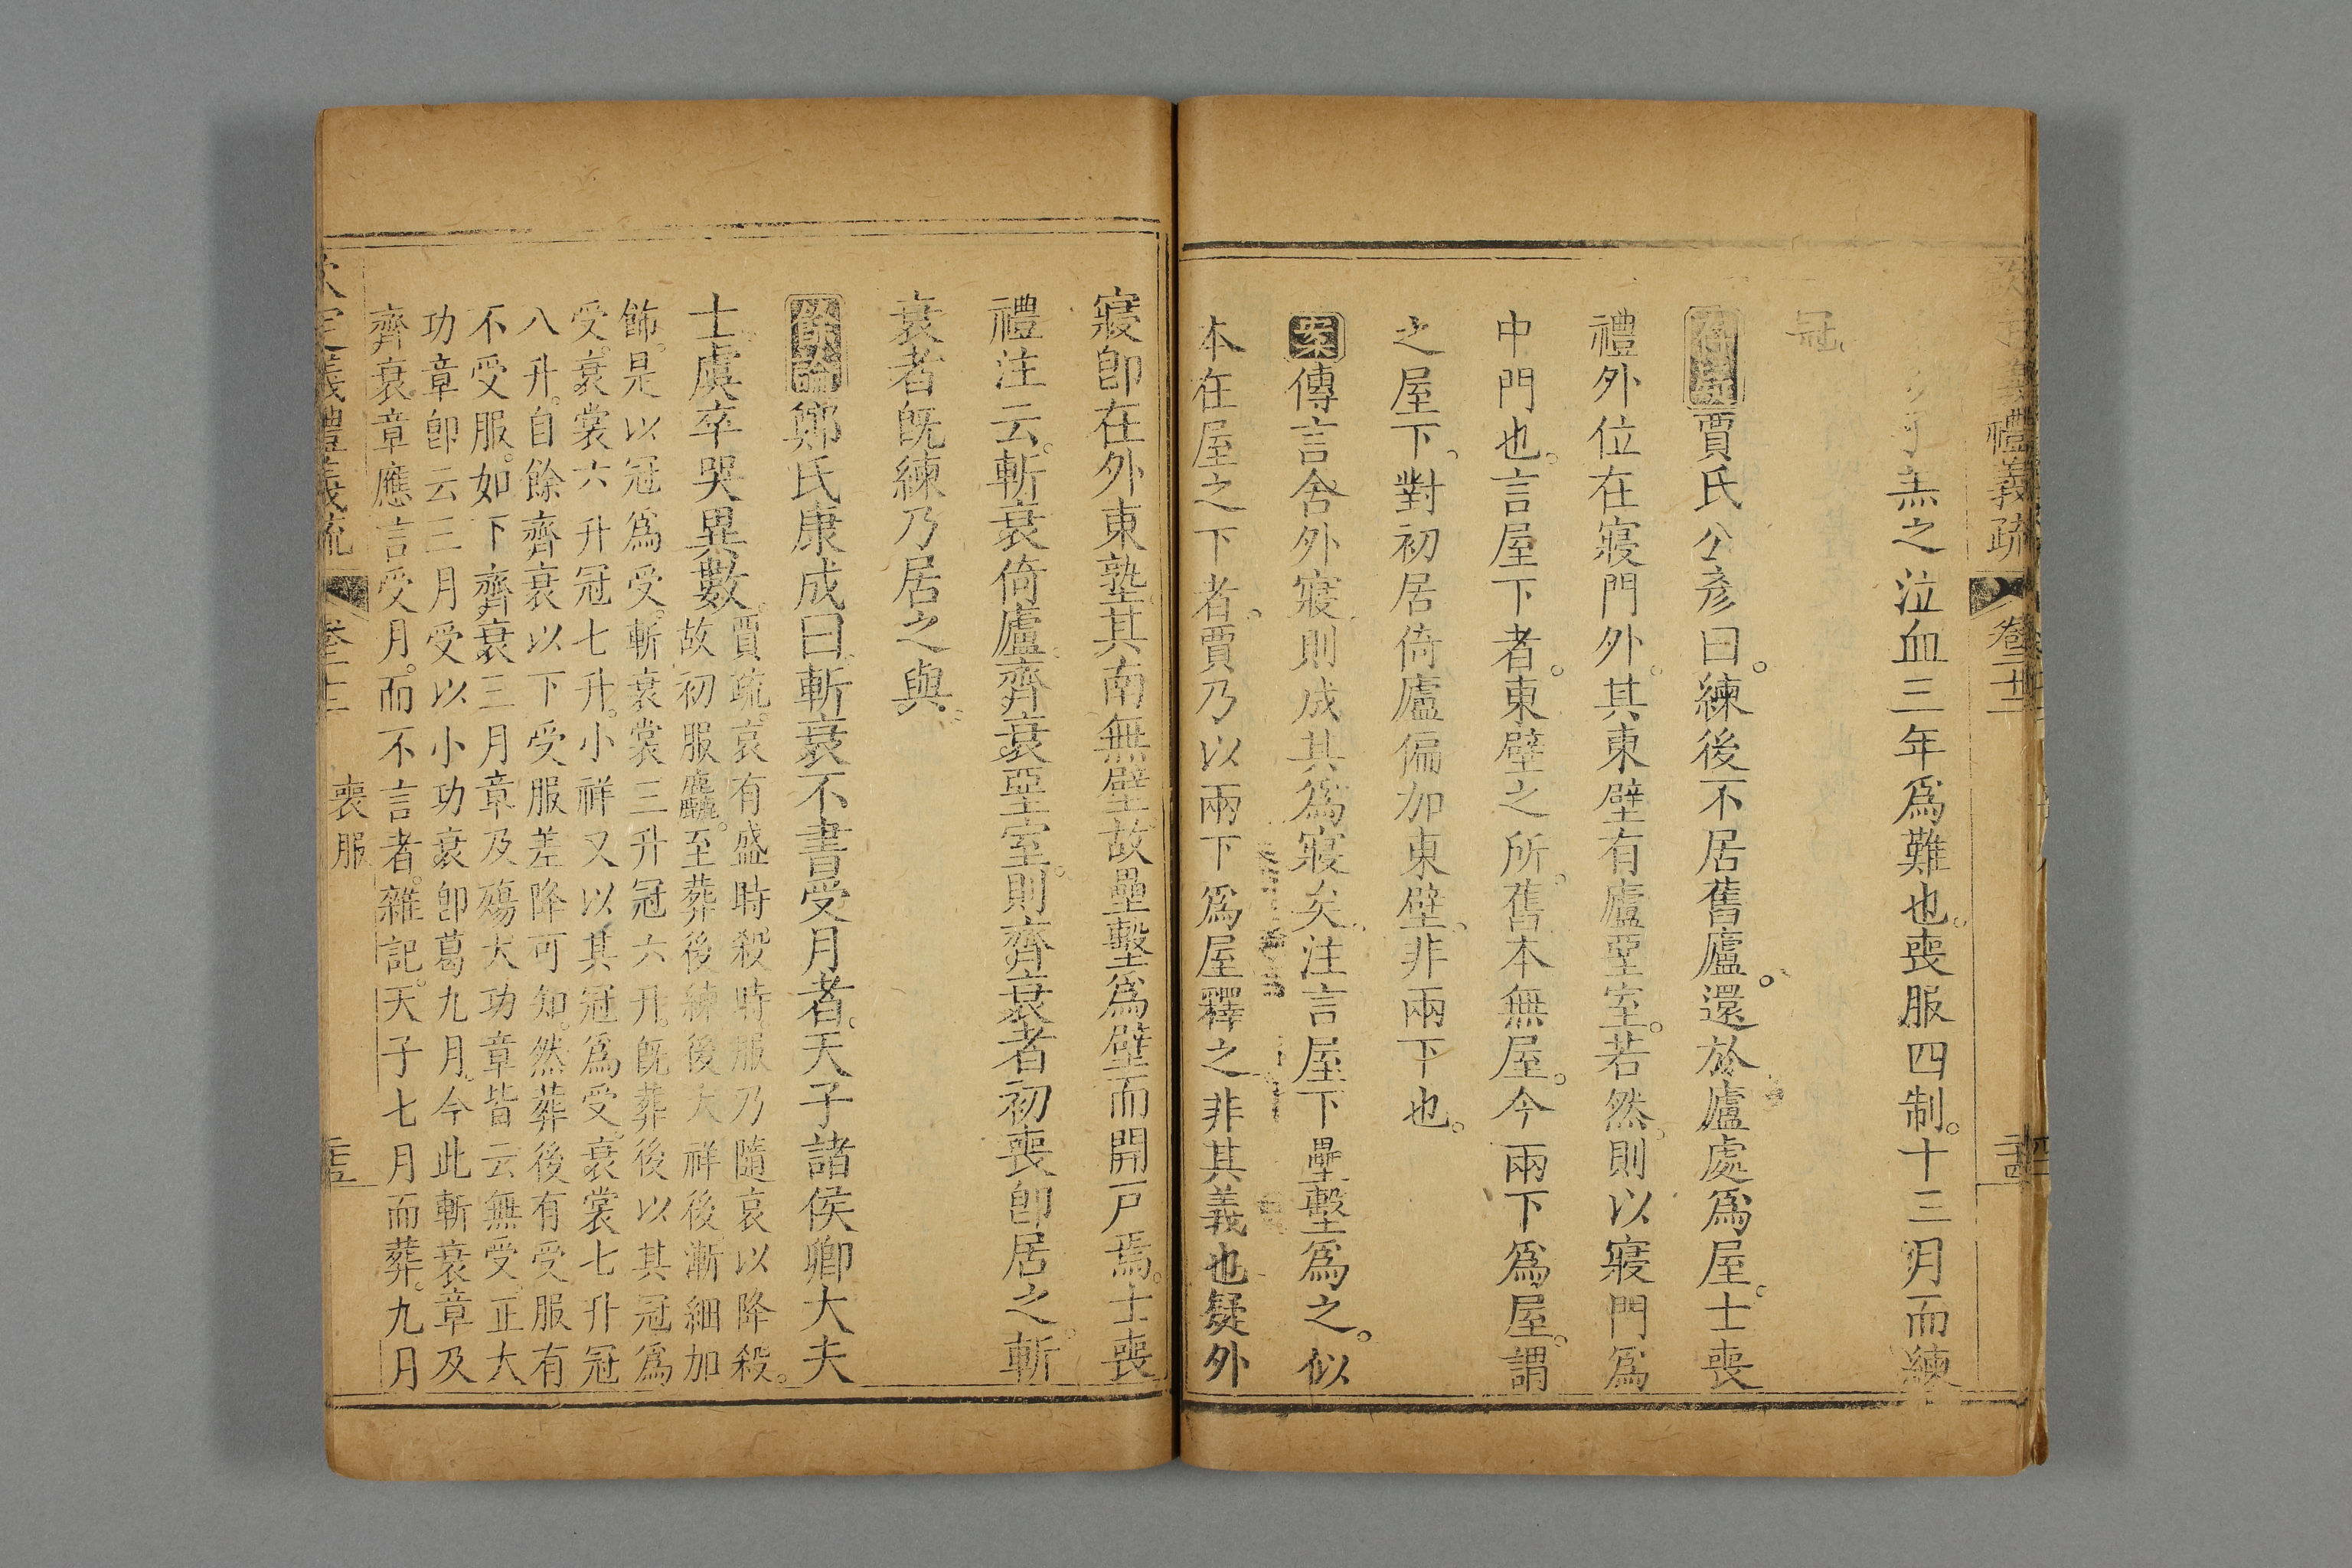 義禮義疏 卷二十二
羔之泣血三年爲難也。喪服四制。十三月而練
冠。
賈氏公彥曰。練後不居舊廬。還於廬處爲屋。士喪
禮外位在寢門外。其東壁有廬堊室。若然。則以寢門爲
中門也。言屋下者。東壁之所。舊本無屋。今兩下爲屋。謂
之屋下。對初居倚廬偏加東壁。非兩下也。
案傳言舍外寢。則成其爲寢矣。注言屋下壘墼爲之。似
本在屋之下者。賈乃以兩下爲屋釋之。非其義也。疑外
寢卽在外東塾。其南無壁。故壘墼爲壁而開戸焉。士喪
禮注云。斬衰倚廬。齊衰堊室。則齊衰者初喪卽居之。斬
衰者旣練乃居之與。
餘論鄭氏康成曰。斬衰不書受月者。天子諸侯卿大夫
士。虞卒哭異數。賈疏。哀有盛時。殺時。服乃隨哀以降殺。
故初服麤。至葬後練後大祥後。漸細加
飾。是以冠爲受。斬衰裳三升冠六升。旣葬後以其冠爲
受。衰裳六升冠七升。小祥又以其冠爲受。衰裳七升冠
八升。自餘齊衰以下受服差降可知。然葬後有受服有
不受服。如下齊衰三月章及殤大功章皆云無受。正大
功章卽云三月受以小功衰卽葛九月。今此斬衰章及
齊衰章應言受月。而不言者。雜記。天子七月而葬。九月
義禮義疏 卷二十二 喪服